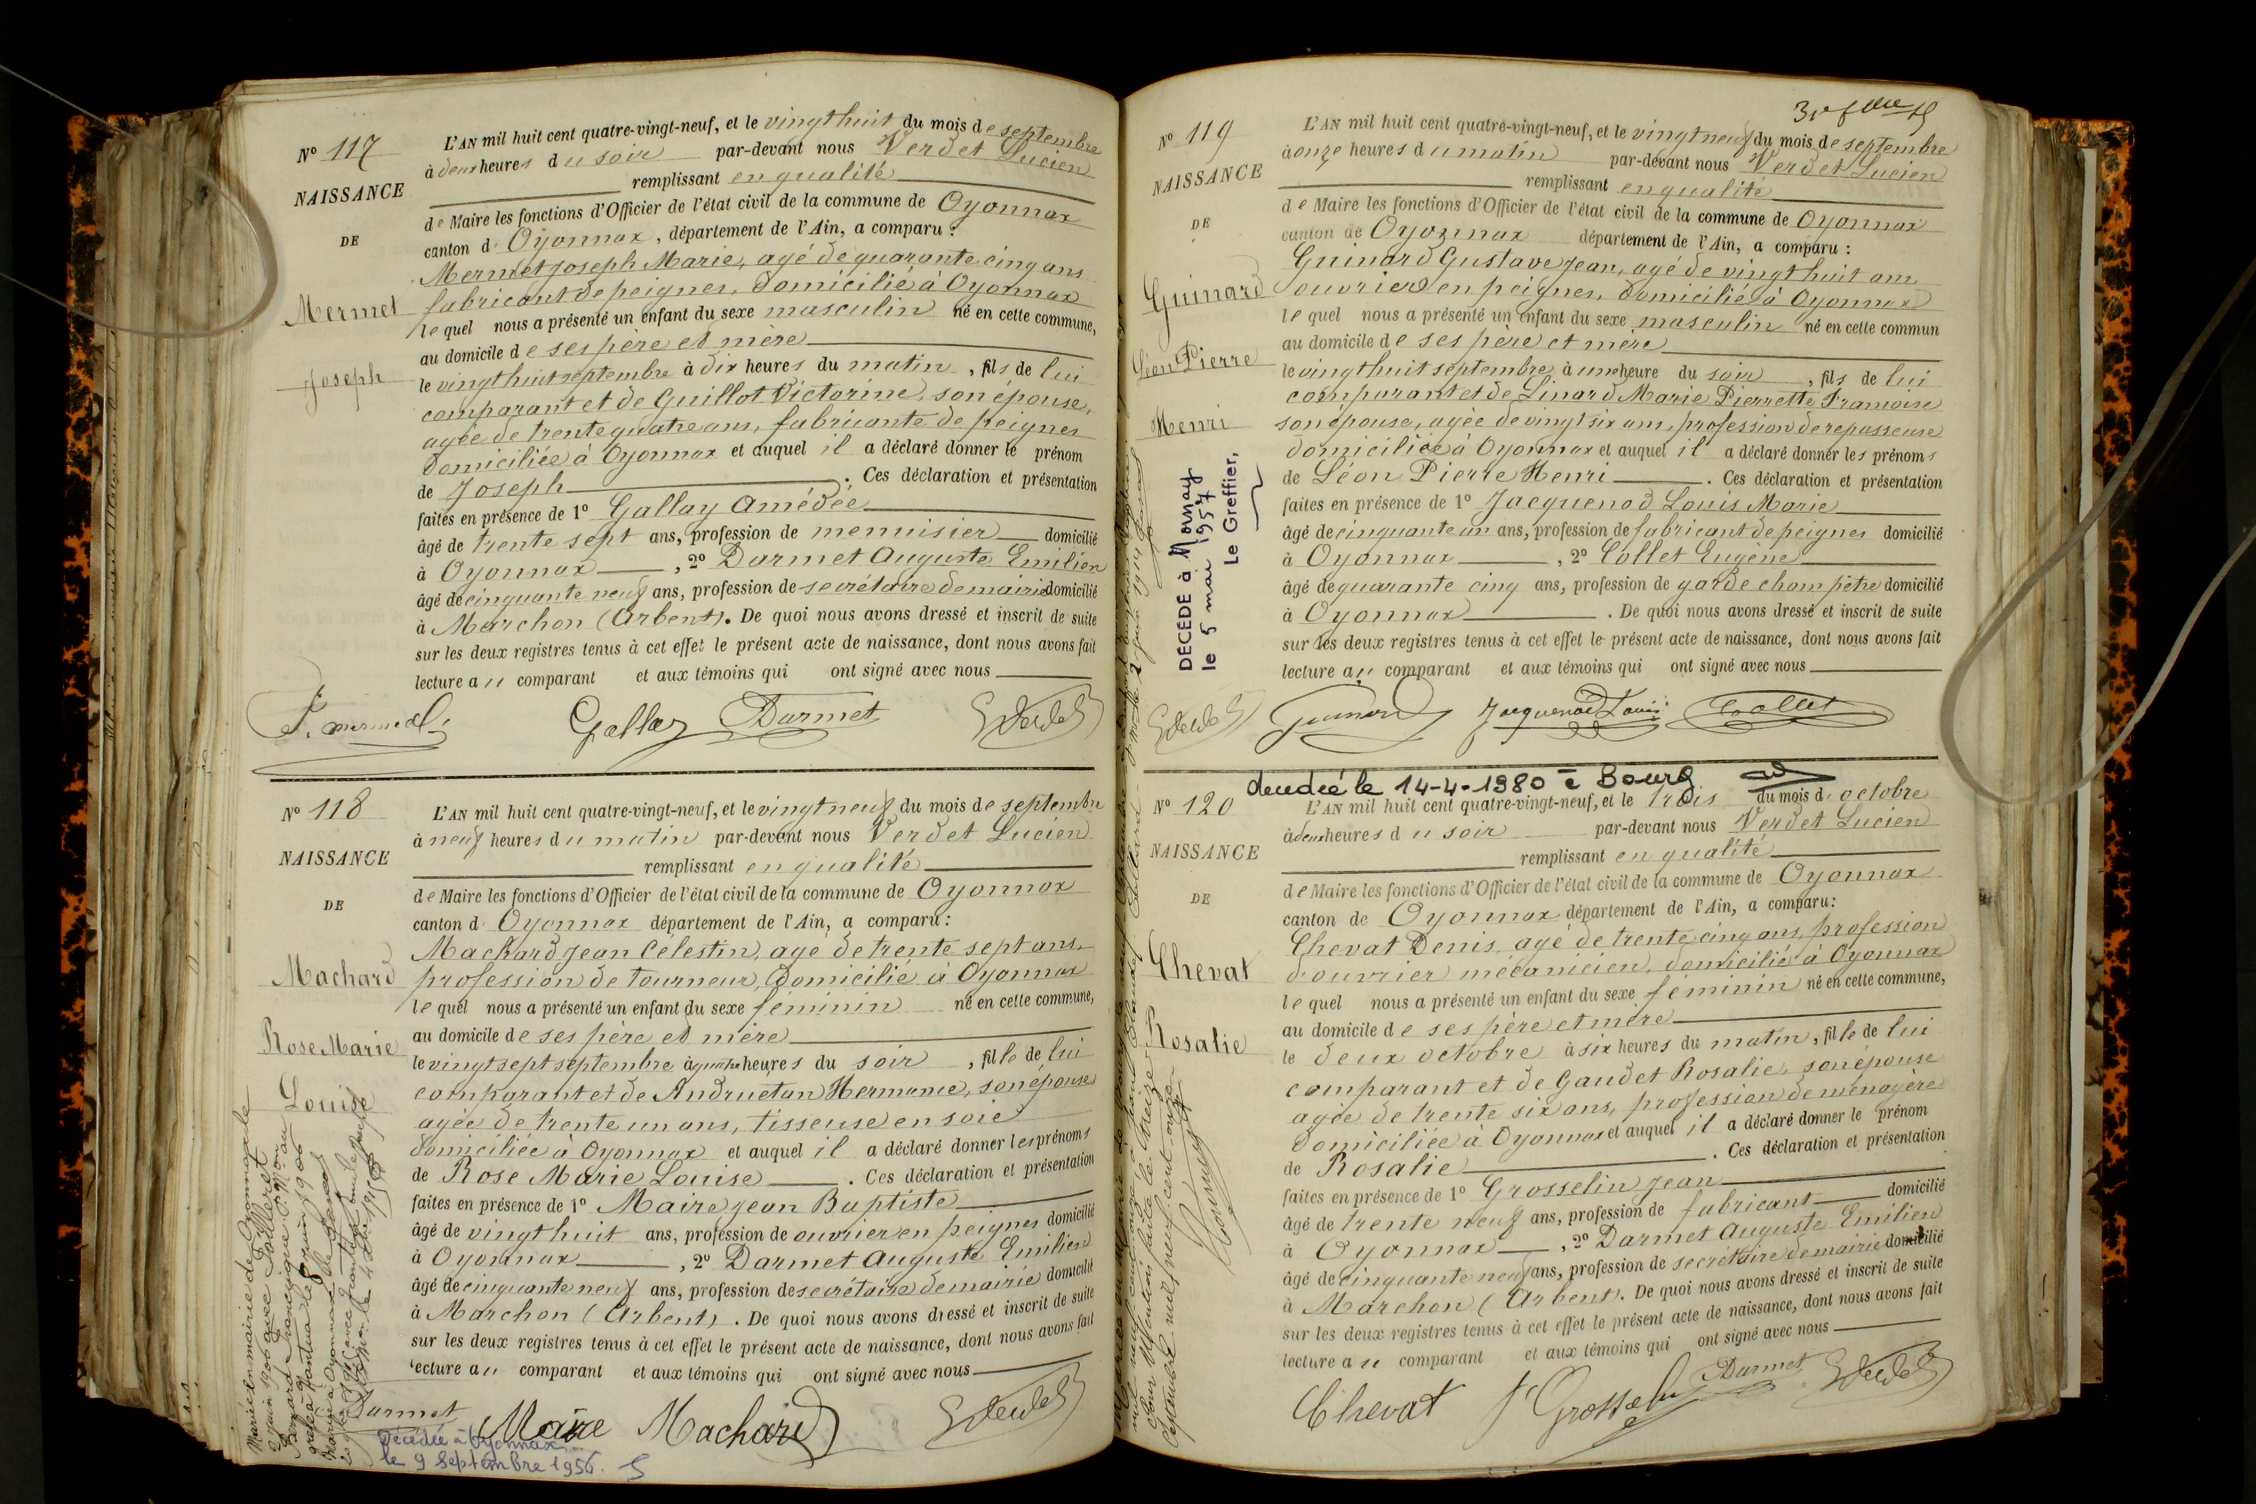 N° 117
NAISSANCE
DE
Mermet
Joseph
L'AN mil huit cent quatre-vingt-neuf, et le vingt huit du mois de septembre
à deux heures du soir par-devant nous Verdet Lucien
remplissant en qualité
de Maire les fonctions d'Officier de l'état civil de la commune de Oyonnax
canton d'Oyonnax, département de l'Ain, a comparu :
Mermet Joseph Marie, agé de quarante cinq ans
fabricant de peignes, domicilié à Oyonnax
lequel nous a présenté un enfant du sexe masculin né en cette commune,
au domicile de ses père et mère
le vingt huit septembre à dix heures du matin, fils de lui
comparant et de Guillot Victorine, son épouse,
agée de trente quatre ans, fabricante de peignes
domiciliée à Oyonnax et auquel il a déclaré donner le prénom
de Joseph. Ces déclaration et présentation
faites en présence de 1° Gallay Amédée
âgé de trente sept ans, profession de menuisier domicilié
à Oyonnax, 2° Darmet Auguste Emilien
âgé de cinquante neuf ans, profession de secrétaire de mairie domicilié
à Marchon (Arbent). De quoi nous avons dressé et inscrit de suite
sur les deux registres tenus à cet effet le présent acte de naissance, dont nous avons fait
lecture au comparant et aux témoins qui ont signé avec nous
J. mermet Gallay Darmet
N° 118
NAISSANCE
DE
Machard
Rose Marie
Louise
L'AN mil huit cent quatre-vingt-neuf, et le vingt neuf du mois de septembre
à neuf heures du matin par-devant nous Verdet Lucien
remplissant en qualité
de Maire les fonctions d'Officier de l'état civil de la commune de Oyonnax
canton d'Oyonnax département de l'Ain, a comparu :
Machard Jean Celestin, agé de trente sept ans,
profession de tourneur, domicilié à Oyonnax
lequel nous a présenté un enfant du sexe féminin né en cette commune,
au domicile de ses père et mère
le vingt sept septembre à quatre heures du soir, fille de lui
comparant et de Andruetan Hermance, son épouse
agée de trente un ans, tisseuse en soie
domiciliée à Oyonnax et auquel il a déclaré donner les prénoms
de Rose Marie Louise. Ces déclaration et présentation
faites en présence de 1° Maire Jean Baptiste
âgé de vingt huit ans, profession de ouvrier en peignes domicilié
à Oyonnax, 2° Darmet Auguste Emilien
âgé de cinquante neuf ans, profession de secrétaire de mairie domicilié
à Marchon (Arbent). De quoi nous avons dressé et inscrit de suite
sur les deux registres tenus à cet effet le présent acte de naissance, dont nous avons fait
lecture au comparant et aux témoins qui ont signé avec nous
Darmet Maire Machard
Décédée à Oyonnax
le 9 Septembre 1956.
N° 119
NAISSANCE
DE
Guinard
Léon Pierre
Henri
DECEDE à Mornay
le 5 mai 1957
Le Greffier,
L'AN mil huit cent quatre-vingt-neuf, et le vingt neuf du mois de septembre
à onze heures du matin par-devant nous Verdet Lucien
remplissant en qualité
de Maire les fonctions d'Officier de l'état civil de la commune de Oyonnax
canton de Oyonnax département de l'Ain, a comparu :
Guinard Gustave Jean, agé de vingt huit ans
ouvrier en peignes, domicilié à Oyonnax
lequel nous a présenté un enfant du sexe masculin né en cette commun
au domicile de ses père et mère
le vingt huit septembre à une heure du soir, fils de lui
comparant et de Linard Marie Pierrette Francoise
son épouse, agée de vingt six ans, profession de repasseuse
domiciliée à Oyonnax et auquel il a déclaré donner les prénoms
de Léon Pierre Henri. Ces déclaration et présentation
faites en présence de 1° Jacquenod Louis Marie
âgé de cinquante un ans, profession de fabricant de peignes domicilié
à Oyonnax, 2° Collet Eugène
âgé de quarante cinq ans, profession de garde champêtre domicilié
à Oyonnax. De quoi nous avons dressé et inscrit de suite
sur les deux registres tenus à cet effet le présent acte de naissance, dont nous avons fait
lecture au comparant et aux témoins qui ont signé avec nous
Guinard Jacquenod Louis Collet
décédée le 14-4-1980 à Bourg
N° 120
NAISSANCE
DE
Chevat
Rosalie
L'AN mil huit cent quatre-vingt-neuf, et le trois du mois d'octobre
à deux heures du soir par-devant nous Verdet Lucien
remplissant en qualité
de Maire les fonctions d'Officier de l'état civil de la commune de Oyonnax
canton de Oyonnax département de l'Ain, a comparu :
Chevat Denis, agé de trente cinq ans, profession
d'ouvrier mécanicien, domicilié à Oyonnax
lequel nous a présenté un enfant du sexe féminin né en cette commune,
au domicile de ses père et mère
le deux octobre à six heures du matin, fille de lui
comparant et de Gaudet Rosalie, son épouse
agée de trente six ans, profession de ménagère
domiciliée à Oyonnax et auquel il a déclaré donner le prénom
de Rosalie. Ces déclaration et présentation
faites en présence de 1° Grosselin Jean
âgé de trente neuf ans, profession de fabricant domicilié
à Oyonnax, 2° Darmet Auguste Emilien
âgé de cinquante neuf ans, profession de secrétaire de mairie domicilié
à Marchon (Arbent). De quoi nous avons dressé et inscrit de suite
sur les deux registres tenus à cet effet le présent acte de naissance, dont nous avons fait
lecture au comparant et aux témoins qui ont signé avec nous
Chevat Grosselin Darmet